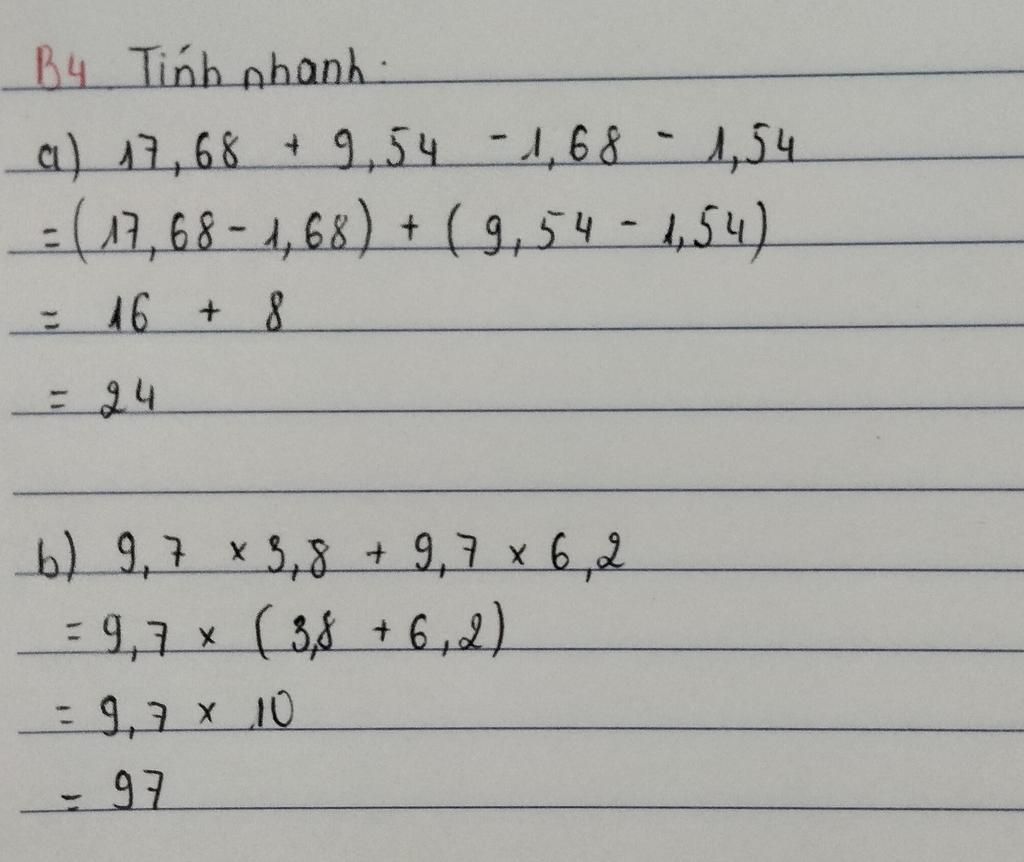 B4. Tính nhanh:
a) 17,68 + 9,54 - 1,68 - 1,54
= (17,68 - 1,68) + (9,54 - 1,54)
= 16 + 8
= 24
b) 9,7 × 3,8 + 9,7 × 6,2
= 9,7 × (3,8 + 6,2)
= 9,7 × 10
= 97